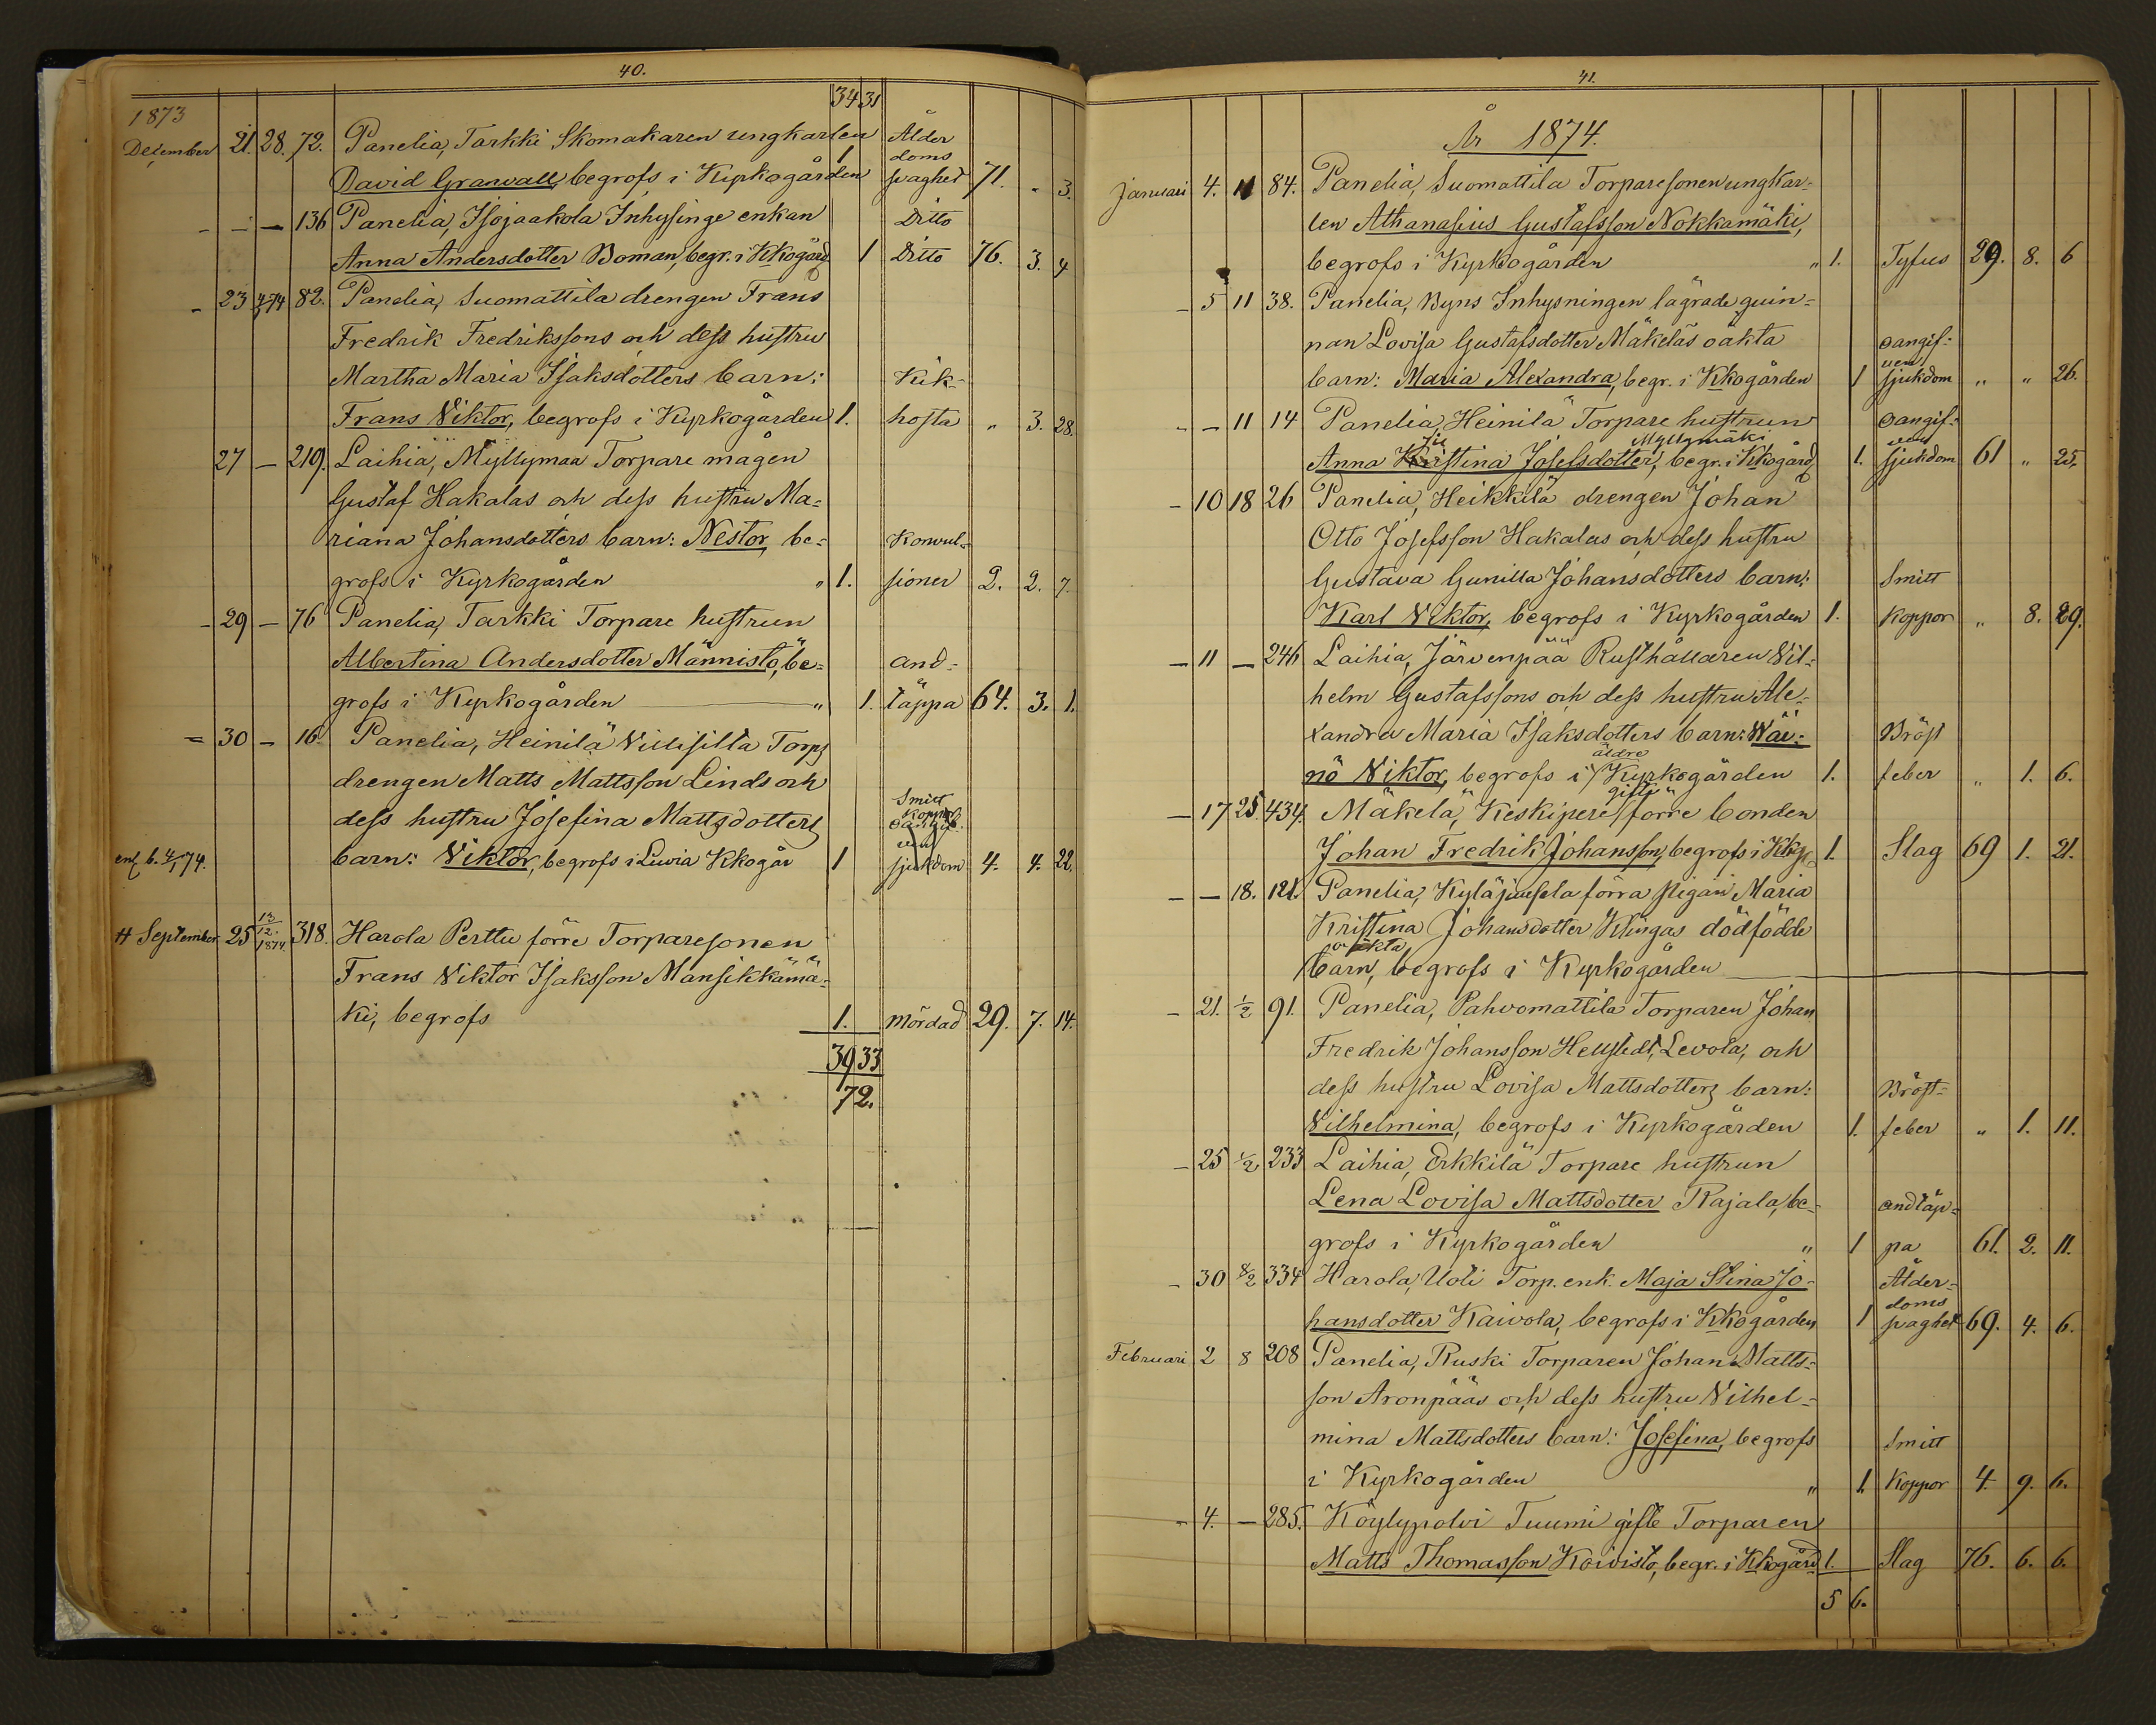 40.
34 31
1873
December 21. 28. 72. Panelia, Tarkki Skomakaren ungkarlen Ålder
doms
David Granvall, begrofs i Kyrkogården 1 svaghet 71. " 3.
- - — 136 Panelia, Isojaakola Inhysinge enkan Ditto
Anna Andersdotter Boman, begr. i Kkogård 1 Ditto 76. 3. 4
- 23 4/1 74 82. Panelia, Suomattila drengen Frans
Fredrik Fredrikssons och dess hustru
Martha Maria Isaksdotters barn: Kik-
Frans Viktor, begrofs i Kyrkogården 1. hosta " 3. 28.
27 — 219. Laihia, Myllymaa Torpare mågen
Gustaf Hakalas och dess hustru Ma=
riana Johansdotters barn: Nestor, be= Konvul=
grofs i Kyrkogården " 1. sioner 2. 2. 7.
- 29 — 76 Panelia, Tarkki Torpare hustrun
Albertina Andersdotter Männistö, be= and=
grofs i Kyrkogården " 1. täppa 64. 3. 1.
= 30 — 16 Panelia, Heinilä Villisilla Torps
drengen Matts Mattsson Linds och
Smitt
koppor
dess hustru Josefina Mattsdotters oangif.
ven
enl. b. 4/1 74. barn: Viktor, begrofs i Luvia Kkogår 1 sjukdom 4. 4. 22.
H September 25 13/12. 1874 318. Harola Perttu förre Torparesonen
Frans Viktor Isaksson Mansikkamä=
ki, begrofs 1. mördad 29. 7. 14.
39 33
72.
41.
År 1874.
Januari 4. 11 84. Panelia, Suomattila Torparesonen ungkar=
len Athanasius Gustafsson Nokkamäki,
begrofs i Kyrkogården " 1. Tyfus 29. 8. 6
- 5 11 38. Panelia, Byns Inhysningen lägrade quin=
nan Lovisa Gustafsdotter Mäkeläs oäkta oangif=
ven
barn: Maria Alexandra, begr. i Kkogården 1 sjukdom " " 26.
- — 11 14 Panelia, Heinilä Torpare hustrun oangif=
Myllymäki ven
Anna Kristina Josefsdotter, begr. i Kkogård 1. sjukdom 61 " 25.
- 10 18 26 Panelia, Heikkilä drengen Johan
Otto Josefsson Hakalas och dess hustru
Gustava Gunilla Johansdotters barn: Smitt
Karl Viktor, begrofs i Kyrkogården 1. koppor " 8. 29.
— 11 — 246 Laihia, Järvenpää Rusthållaren Vil=
helm Gustafssons och dess hustru Ale=
xandra Maria Isaksdotters barn: Wäi= Bröst
äldre
nö Viktor, begrofs i Kyrkogården 1. feber " 1. 6.
gifte
— 17 25. 434. Mäkelä, Keskipere förre bonden
Johan Fredrik Johansson, begrofs i Kkg. 1. Slag 69 1. 21.
- — 18. 121. Panelia, Kyläjaasola förra pigan Maria
Kristina Johansdotter Klingas dödfödde
oäkta
barn, begrofs i Kyrkogården
- 21. 1/2 91. Panelia, Pahvomattila Torparen Johan
Fredrik Johansson Hellstedt, Levola, och
dess hustru Lovisa Mattsdotters barn: Bröst=
Vilhelmina, begrofs i Kyrkogården 1. feber " 1. 11.
- 25 1/2 233 Laihia, Erkkilä Torpare hustrun
Lena Lovisa Mattsdotter Rajala, be= andtäp=
grofs i Kyrkogården " 1 pa 61. 2. 11.
- 30 8/2 334 Harola, Uoti Torp. enk. Maja Stina Jo= Ålder=
doms
hansdotter Kaivola, begrofs i Kkogården 1 svaghet 69. 4. 6.
Februari 2 8 208 Panelia, Ruski Torparen Johan Matts=
son Aronpääs och dess hustru Vilhel=
mina Mattsdotters barn: Josefina, begrofs Smitt
i Kyrkogården " 1. koppor 4. 9. 6.
- 4. — 285. Köylypolvi Tuumi gifte Torparen
Matts Thomasson Koivisto, begr. i Kkogård 1. Slag 76. 6. 6.
5 6.